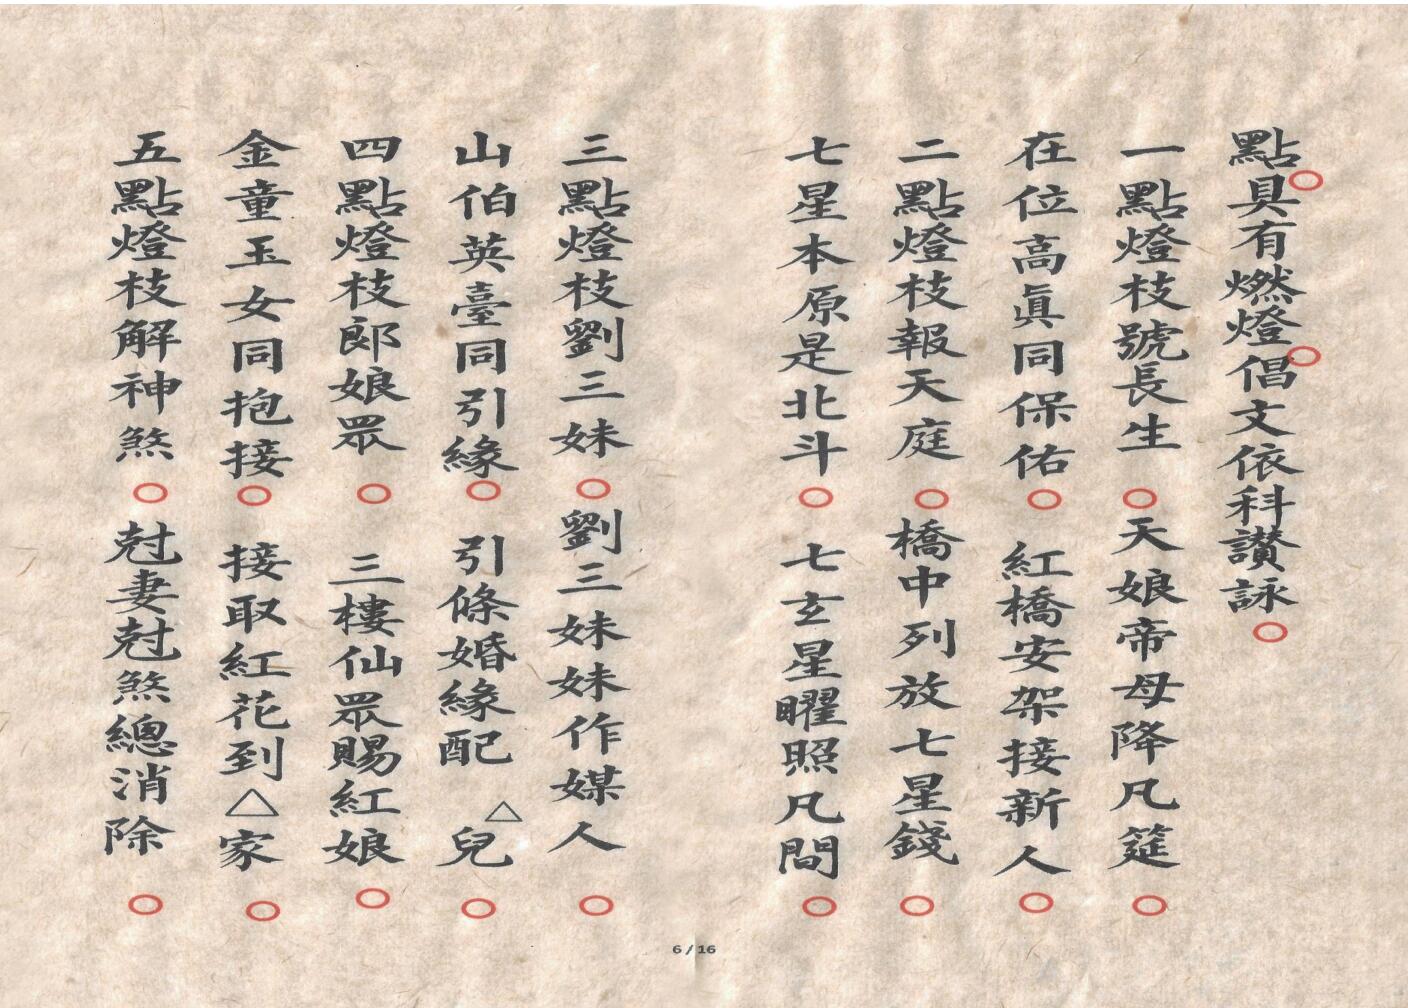 點○具有燃燈○倡文依科讃詠○
一點燈枝號長生○天娘帝母降凡筵○
在位高眞同保佑○紅橋安架接新人○
二點燈枝報天庭○橋中列放七星錢○
七星本原是北斗○七玄星曜照凡間○
三點燈枝劉三妹○劉三妹妹作媒人○
山伯英臺同引緣○引條婚緣配△兒○
四點燈枝郎娘眾○三樓仙眾賜紅娘○
金童玉女同抱接○接取紅花到△家○
五點燈枝解神煞○尅妻尅煞總消除○
6 / 16